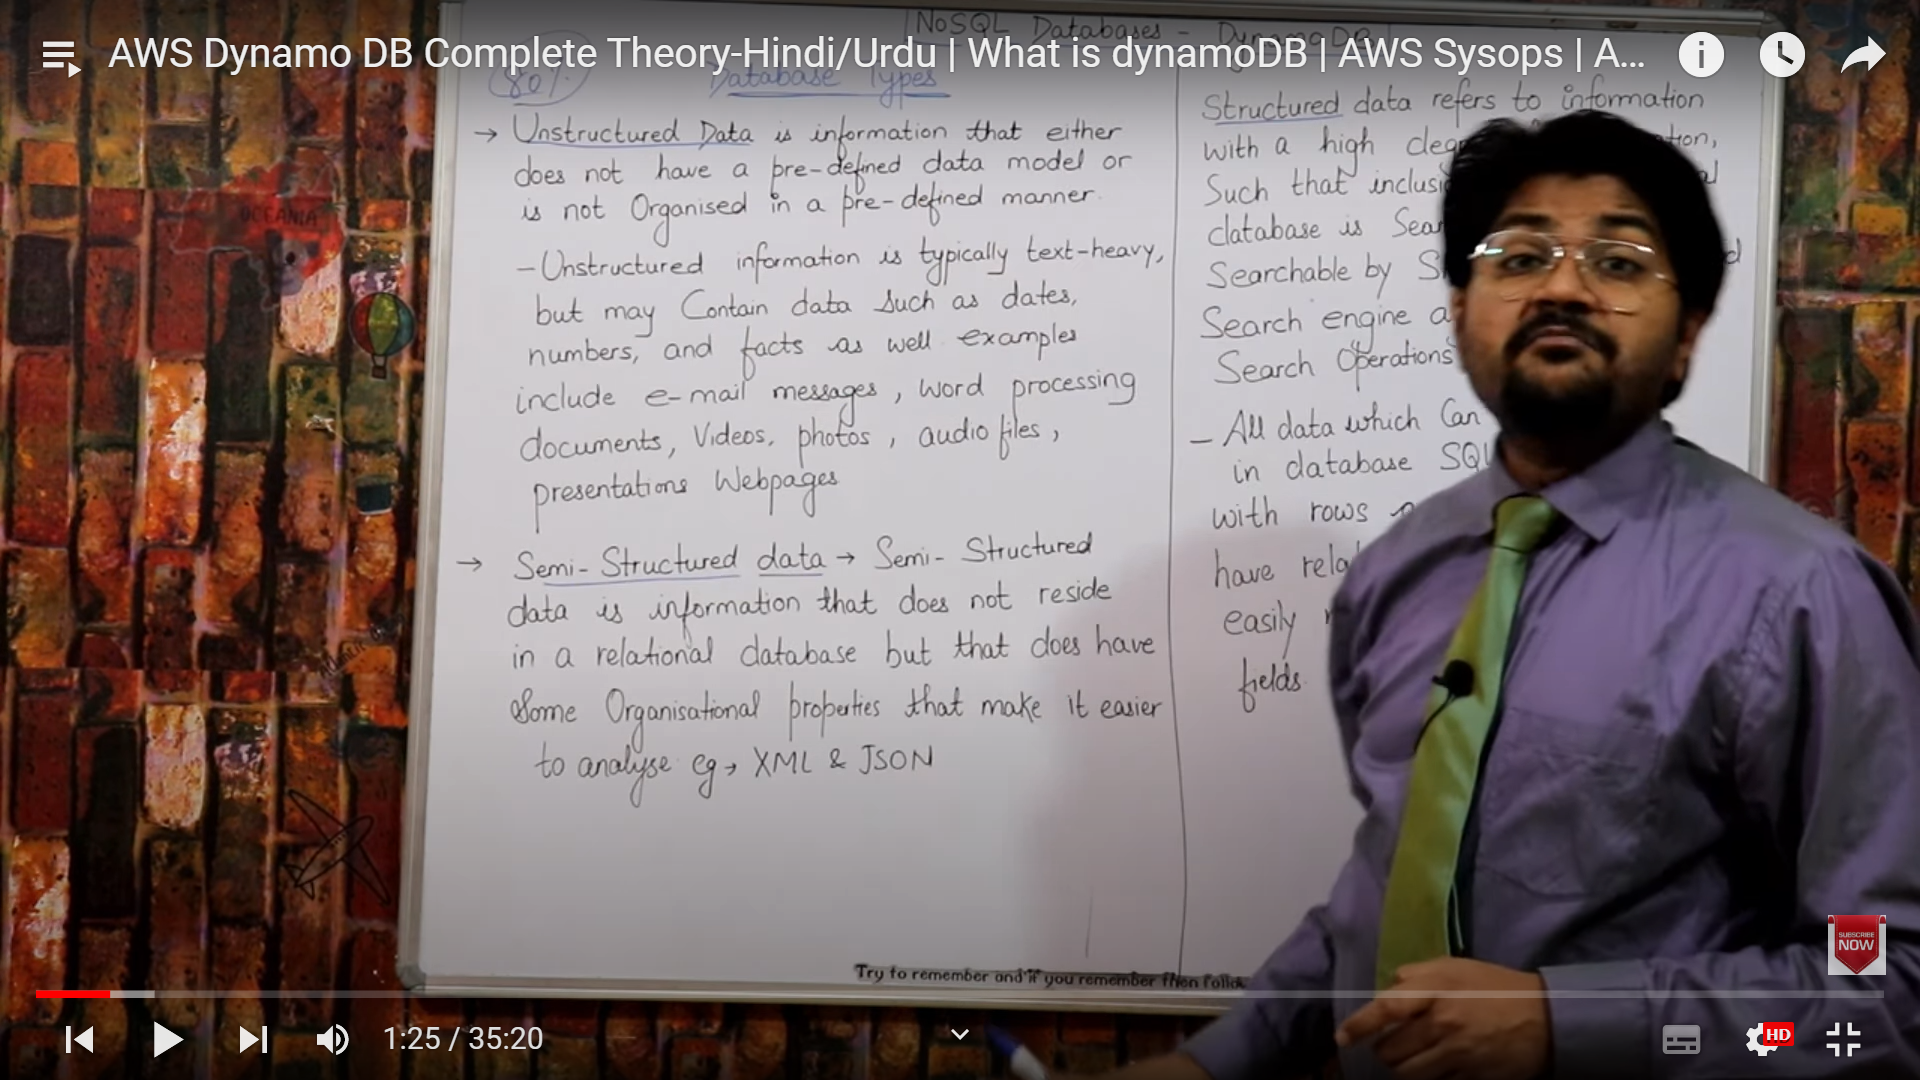 NoSQL Databases - DynamoDB
AWS Dynamo DB Complete Theory-Hindi/Urdu | What is dynamoDB | AWS Sysops | A...
80%
Database Types
→ Unstructured Data is information that either
does not have a pre-defined data model or
is not Organised in a pre-defined manner.
- Unstructured information is typically text-heavy,
but may Contain data such as dates,
numbers, and facts as well examples
include e-mail messages, word processing
documents, Videos, photos, audio files,
presentations Webpages
→ Semi-Structured data → Semi-Structured
data is information that does not reside
in a relational database but that does have
Some Organisational properties that make it easier
to analyse eg → XML & JSON
Structured data refers to information
with a high
Such that
database is
Searchable by
Search engine
Search Operations
- All data which Can
in database SQL
with rows
have
easily
fields
OCEANIA
Try to remember and if you remember then
SUBSCRIBE
NOW
1:25 / 35:20
HD